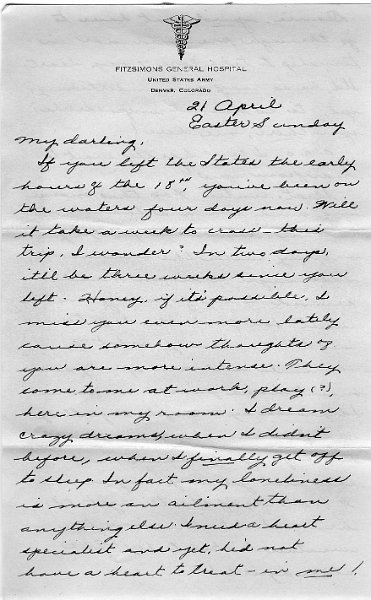 FITZSIMONS GENERAL HOSPITAL
UNITED STATES ARMY
DENVER, COLORADO
21 April
Easter Sunday
My darling,
If you left the States the early
hours of the 18th, you've been on
the waters four days now. Will
it take a week to cross this
trip, I wonder? In two days,
it'll be three weeks since you
left. Honey, if it's possible, I
miss you even more lately
cause somehow thoughts of
you are more intense. They
come to me at work, play (?),
here in my room. I dream
crazy dreams when I didn't
before, when I finally get off
to sleep. In fact my loneliness
is more an ailment than
anything else. I need a heart
specialist and yet, he'd not
have a heart to treat - in me!